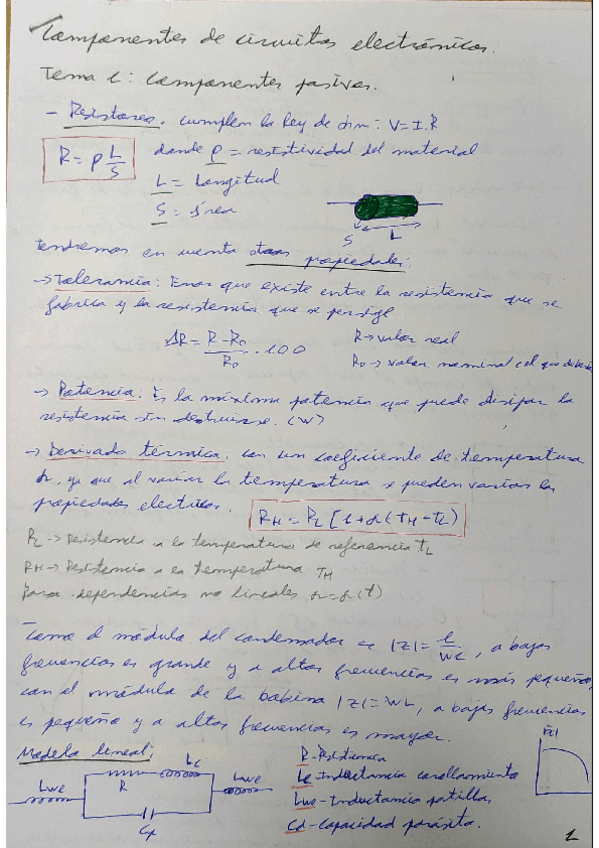 Componentes de circuitos electrónicos.
Tema 1: Componentes pasivos.
- Resistores. cumplen la Ley de Ohm: V=I.R
R=ρ L/S donde ρ = resistividad del material
L = Longitud
S = área
S L
tendremos en cuenta propiedades:
→ Tolerancia: Error que existe entre la resistencia que se
fabrica y la resistencia que se persige
ΔR = (R-R0)/R0 · 100 R→valor real
R0→ valor nominal (el que
→ Potencia. Es la máxima potencia que puede disipar la
resistencia sin destruirse. (W)
→ Derivada térmica. con un coeficiente de temperatura
α, ya que al variar la temperatura se pueden variar las
propiedades electricas. RH = RL [1+α(TH-TL)]
RL → Resistencia a la temperatura de referencia TL
RH → Resistencia a la temperatura TH
Para dependencias no lineales α=α(t)
Como el módulo del condensador es |Z|= 1/WC, a bajas
frecuencias es grande y a altas frecuencias es más pequeña,
con el módulo de la bobina |Z|=WL, a bajas frecuencias
es pequeño y a altas frecuencias es mayor.
Modelo lineal:
Lwe R Lc Lwe
R-Resistencia
Lc-Inductancia
Lwe-Inductancia patillas
Cd-capacidad parásita.
|Z|
1